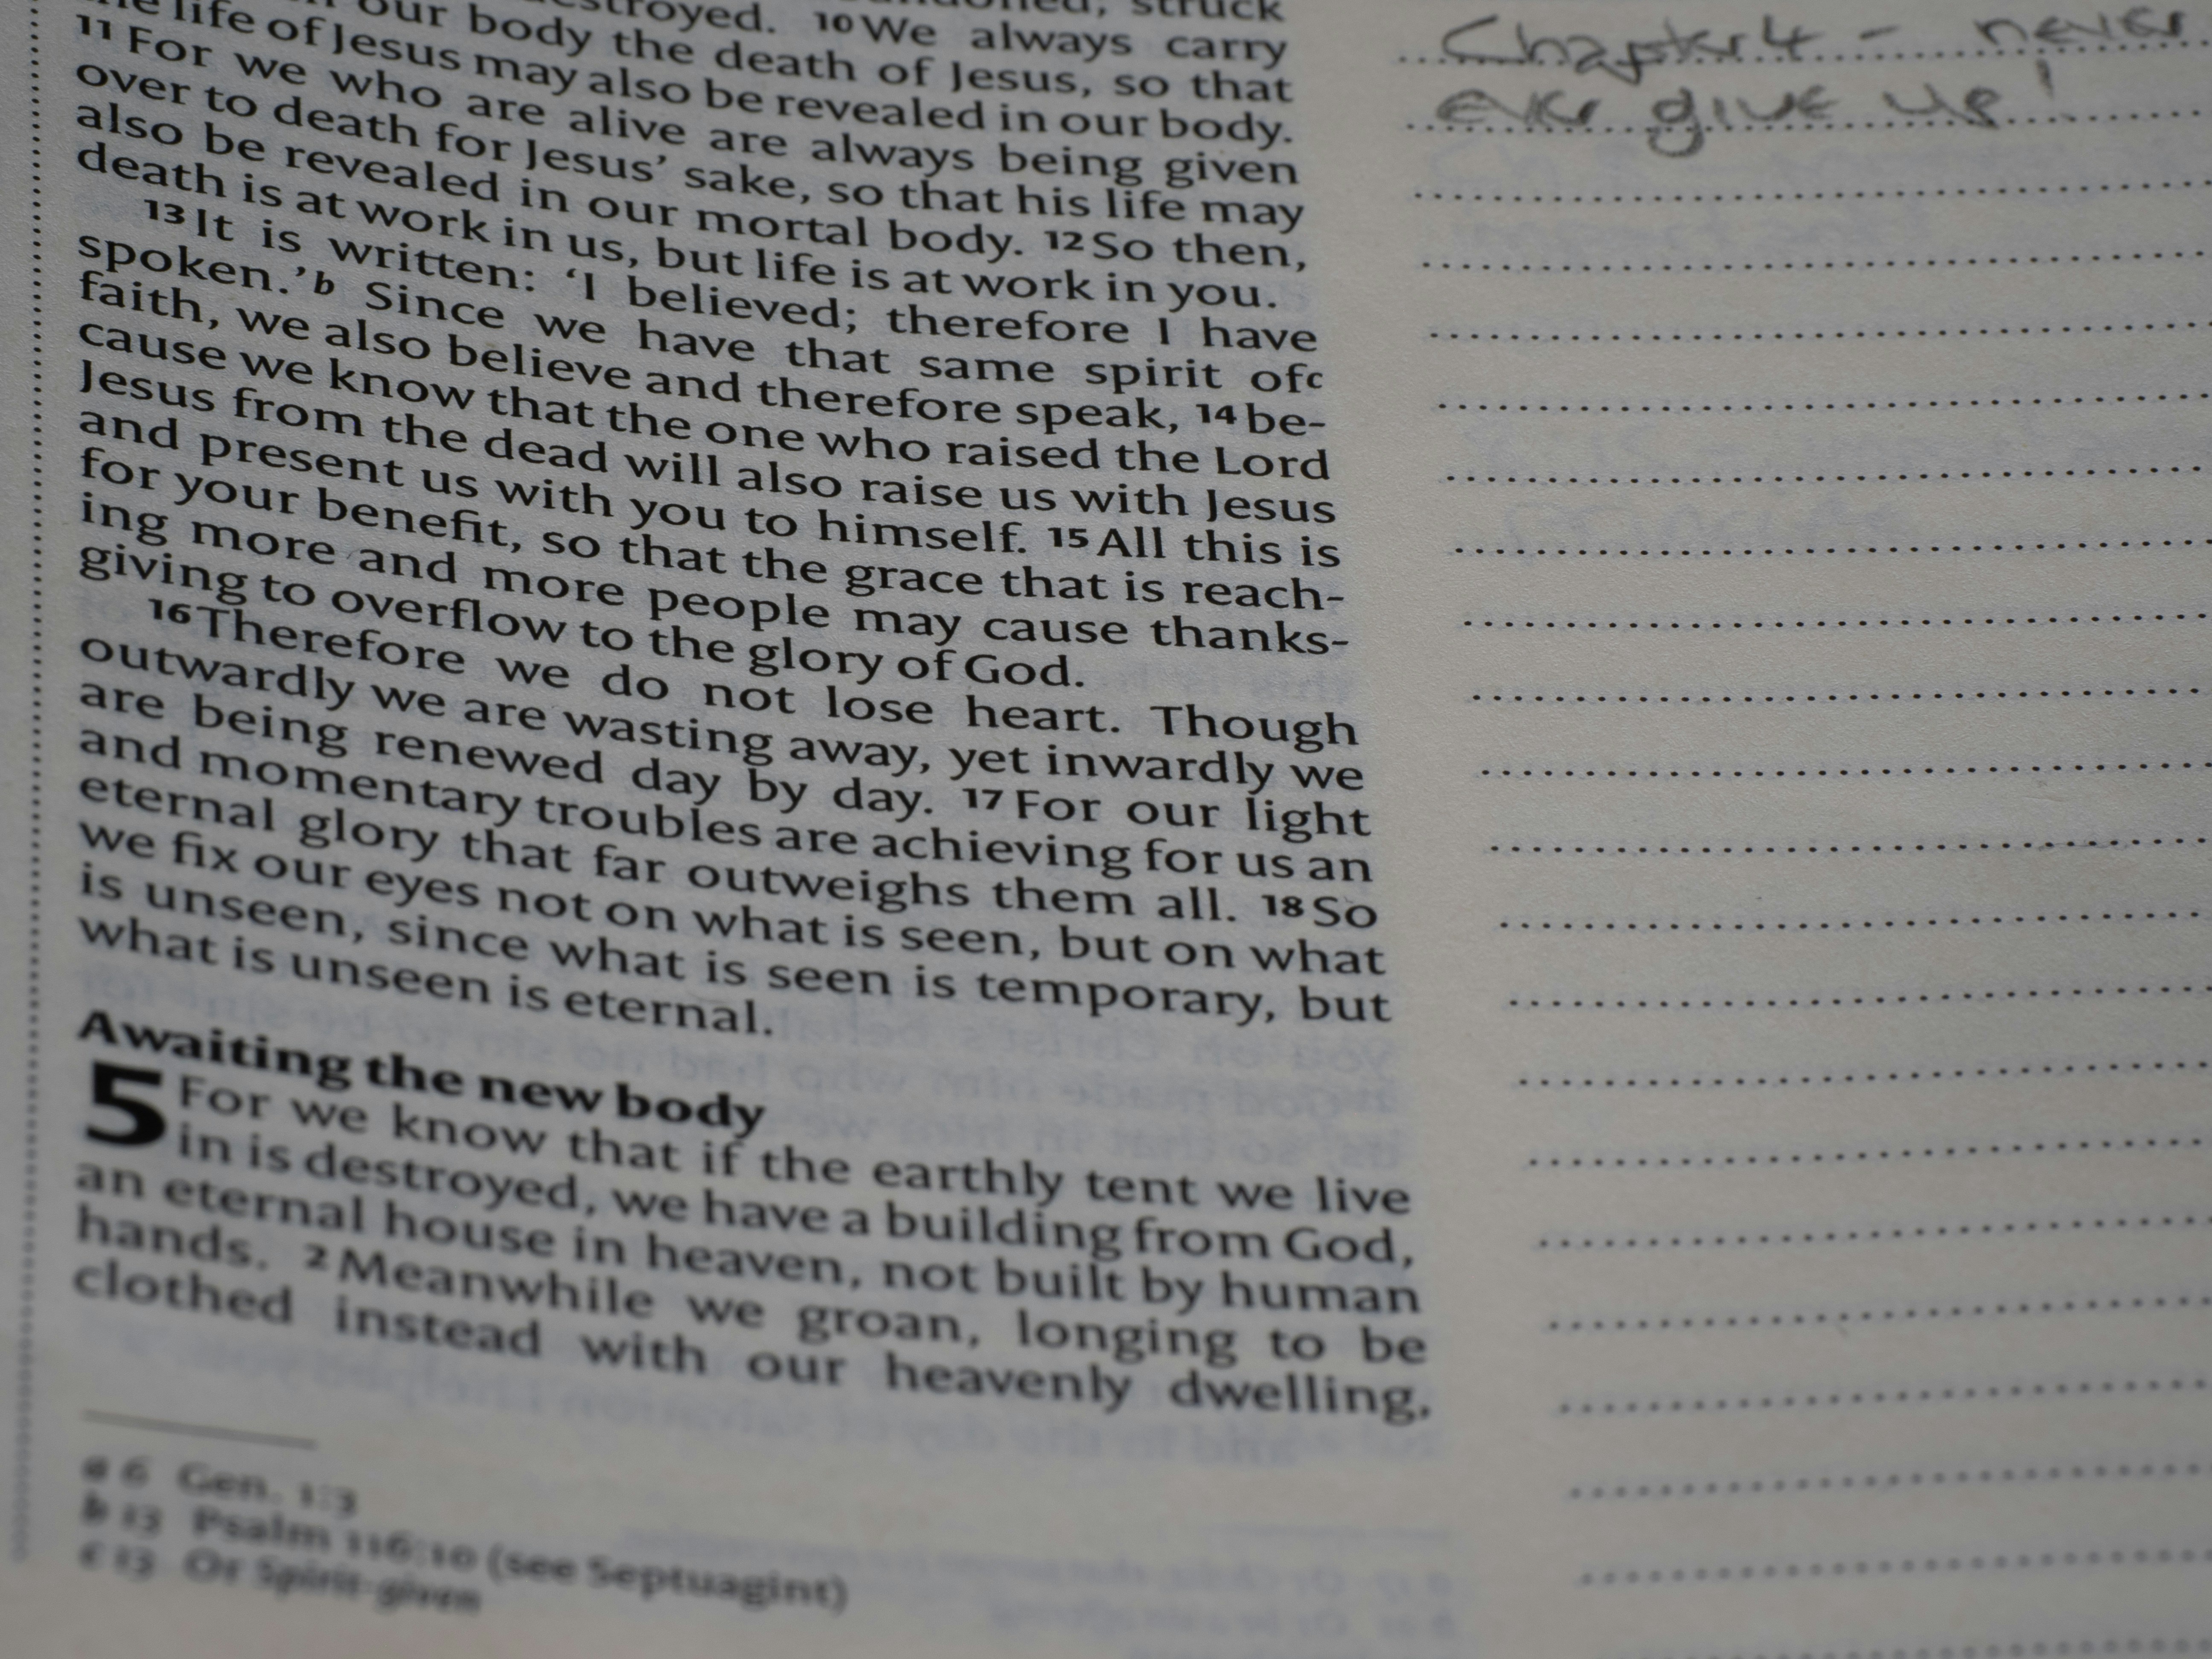 struck
destroyed. 10 We always carry
our body the death of Jesus, so that
life of Jesus may also be revealed in our body.
11 For we who are alive are always being given
over to death for Jesus’ sake, so that his life may
also be revealed in our mortal body. 12 So then,
death is at work in us, but life is at work in you.
13 It is written: ‘I believed; therefore I have
spoken.’b Since we have that same spirit ofc
faith, we also believe and therefore speak, 14 be-
cause we know that the one who raised the Lord
Jesus from the dead will also raise us with Jesus
and present us with you to himself. 15 All this is
for your benefit, so that the grace that is reach-
ing more and more people may cause thanks-
giving to overflow to the glory of God.
16 Therefore we do not lose heart. Though
outwardly we are wasting away, yet inwardly we
are being renewed day by day. 17 For our light
and momentary troubles are achieving for us an
eternal glory that far outweighs them all. 18 So
we fix our eyes not on what is seen, but on what
is unseen, since what is seen is temporary, but
what is unseen is eternal.
Awaiting the new body
5 For we know that if the earthly tent we live
in is destroyed, we have a building from God,
an eternal house in heaven, not built by human
hands. 2 Meanwhile we groan, longing to be
clothed instead with our heavenly dwelling,
a 6 Gen. 1:3
b 13 Psalm 116:10 (see Septuagint)
c 13 Or Spirit-given
Chapter 4 - never
ever give up!